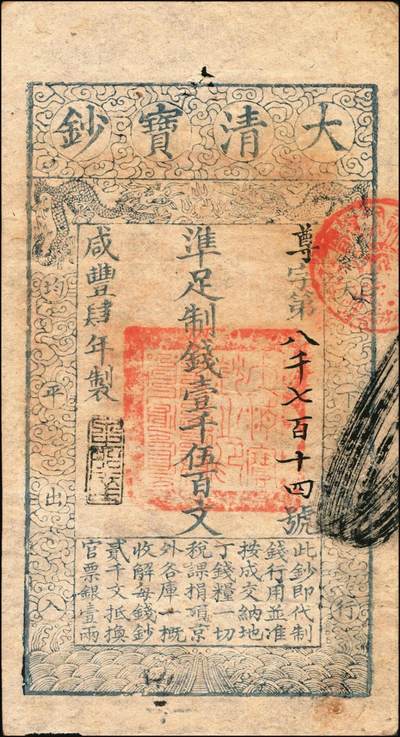 大清寶鈔
尊字第八千七百十四號
準足制錢壹千伍百文
咸豐肆年製
天下
行
均平出入
此鈔即代制
錢行用並准
按成交納地
丁錢糧一切
稅課捐項京
外各庫一概
收解每錢鈔
貳千文抵換
官票銀壹兩